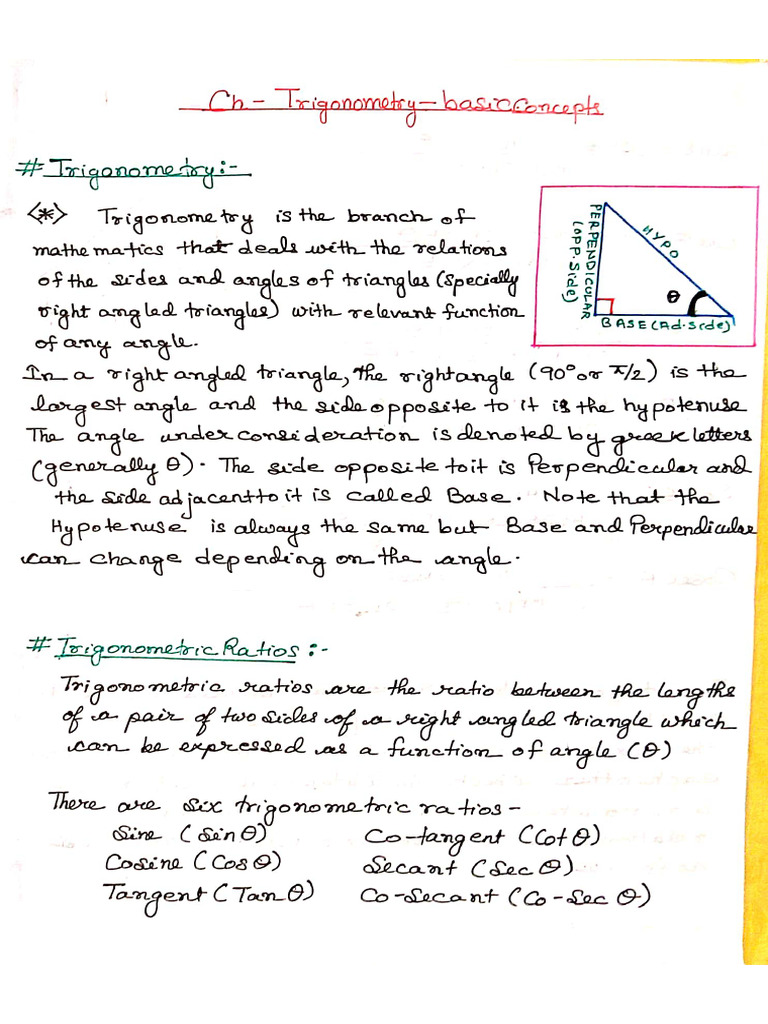 Ch - Trigonometry - basic concepts
# Trigonometry:-
<*> Trigonometry is the branch of
mathematics that deals with the relations
of the sides and angles of triangles (specially
right angled triangles) with relevant function
of any angle.
PERPENDICULAR
(OPP. Side)
HYPO
θ
BASE (Ad. Side)
In a right angled triangle, the right angle (90° or π/2) is the
largest angle and the side opposite to it is the hypotenuse
The angle under consideration is denoted by greek letters
(generally θ). The side opposite to it is Perpendicular and
the side adjacent to it is called Base. Note that the
Hypotenuse is always the same but Base and Perpendicular
can change depending on the angle.
# Trigonometric Ratios:-
Trigonometric ratios are the ratio between the lengths
of a pair of two sides of a right angled triangle which
can be expressed as a function of angle (θ)
There are six trigonometric ratios-
Sine (Sin θ) Co-tangent (Cot θ)
Cosine (Cos θ) Secant (Sec θ)
Tangent (Tan θ) Co-Secant (Co-Sec θ)